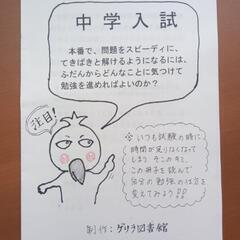 中学入試
本番で、問題をスピーディに、
てきぱきと解けるようになるには、
ふだんからどんなことに気つけて
勉強を進めればよいのか？
注目!
☆いつも試験の時に
時間が足りなくなって
しまう そこのキミ、
この冊子を読んで
自分の勉強の仕方を
変えてみよう!!
制作：ゲリラ図書館